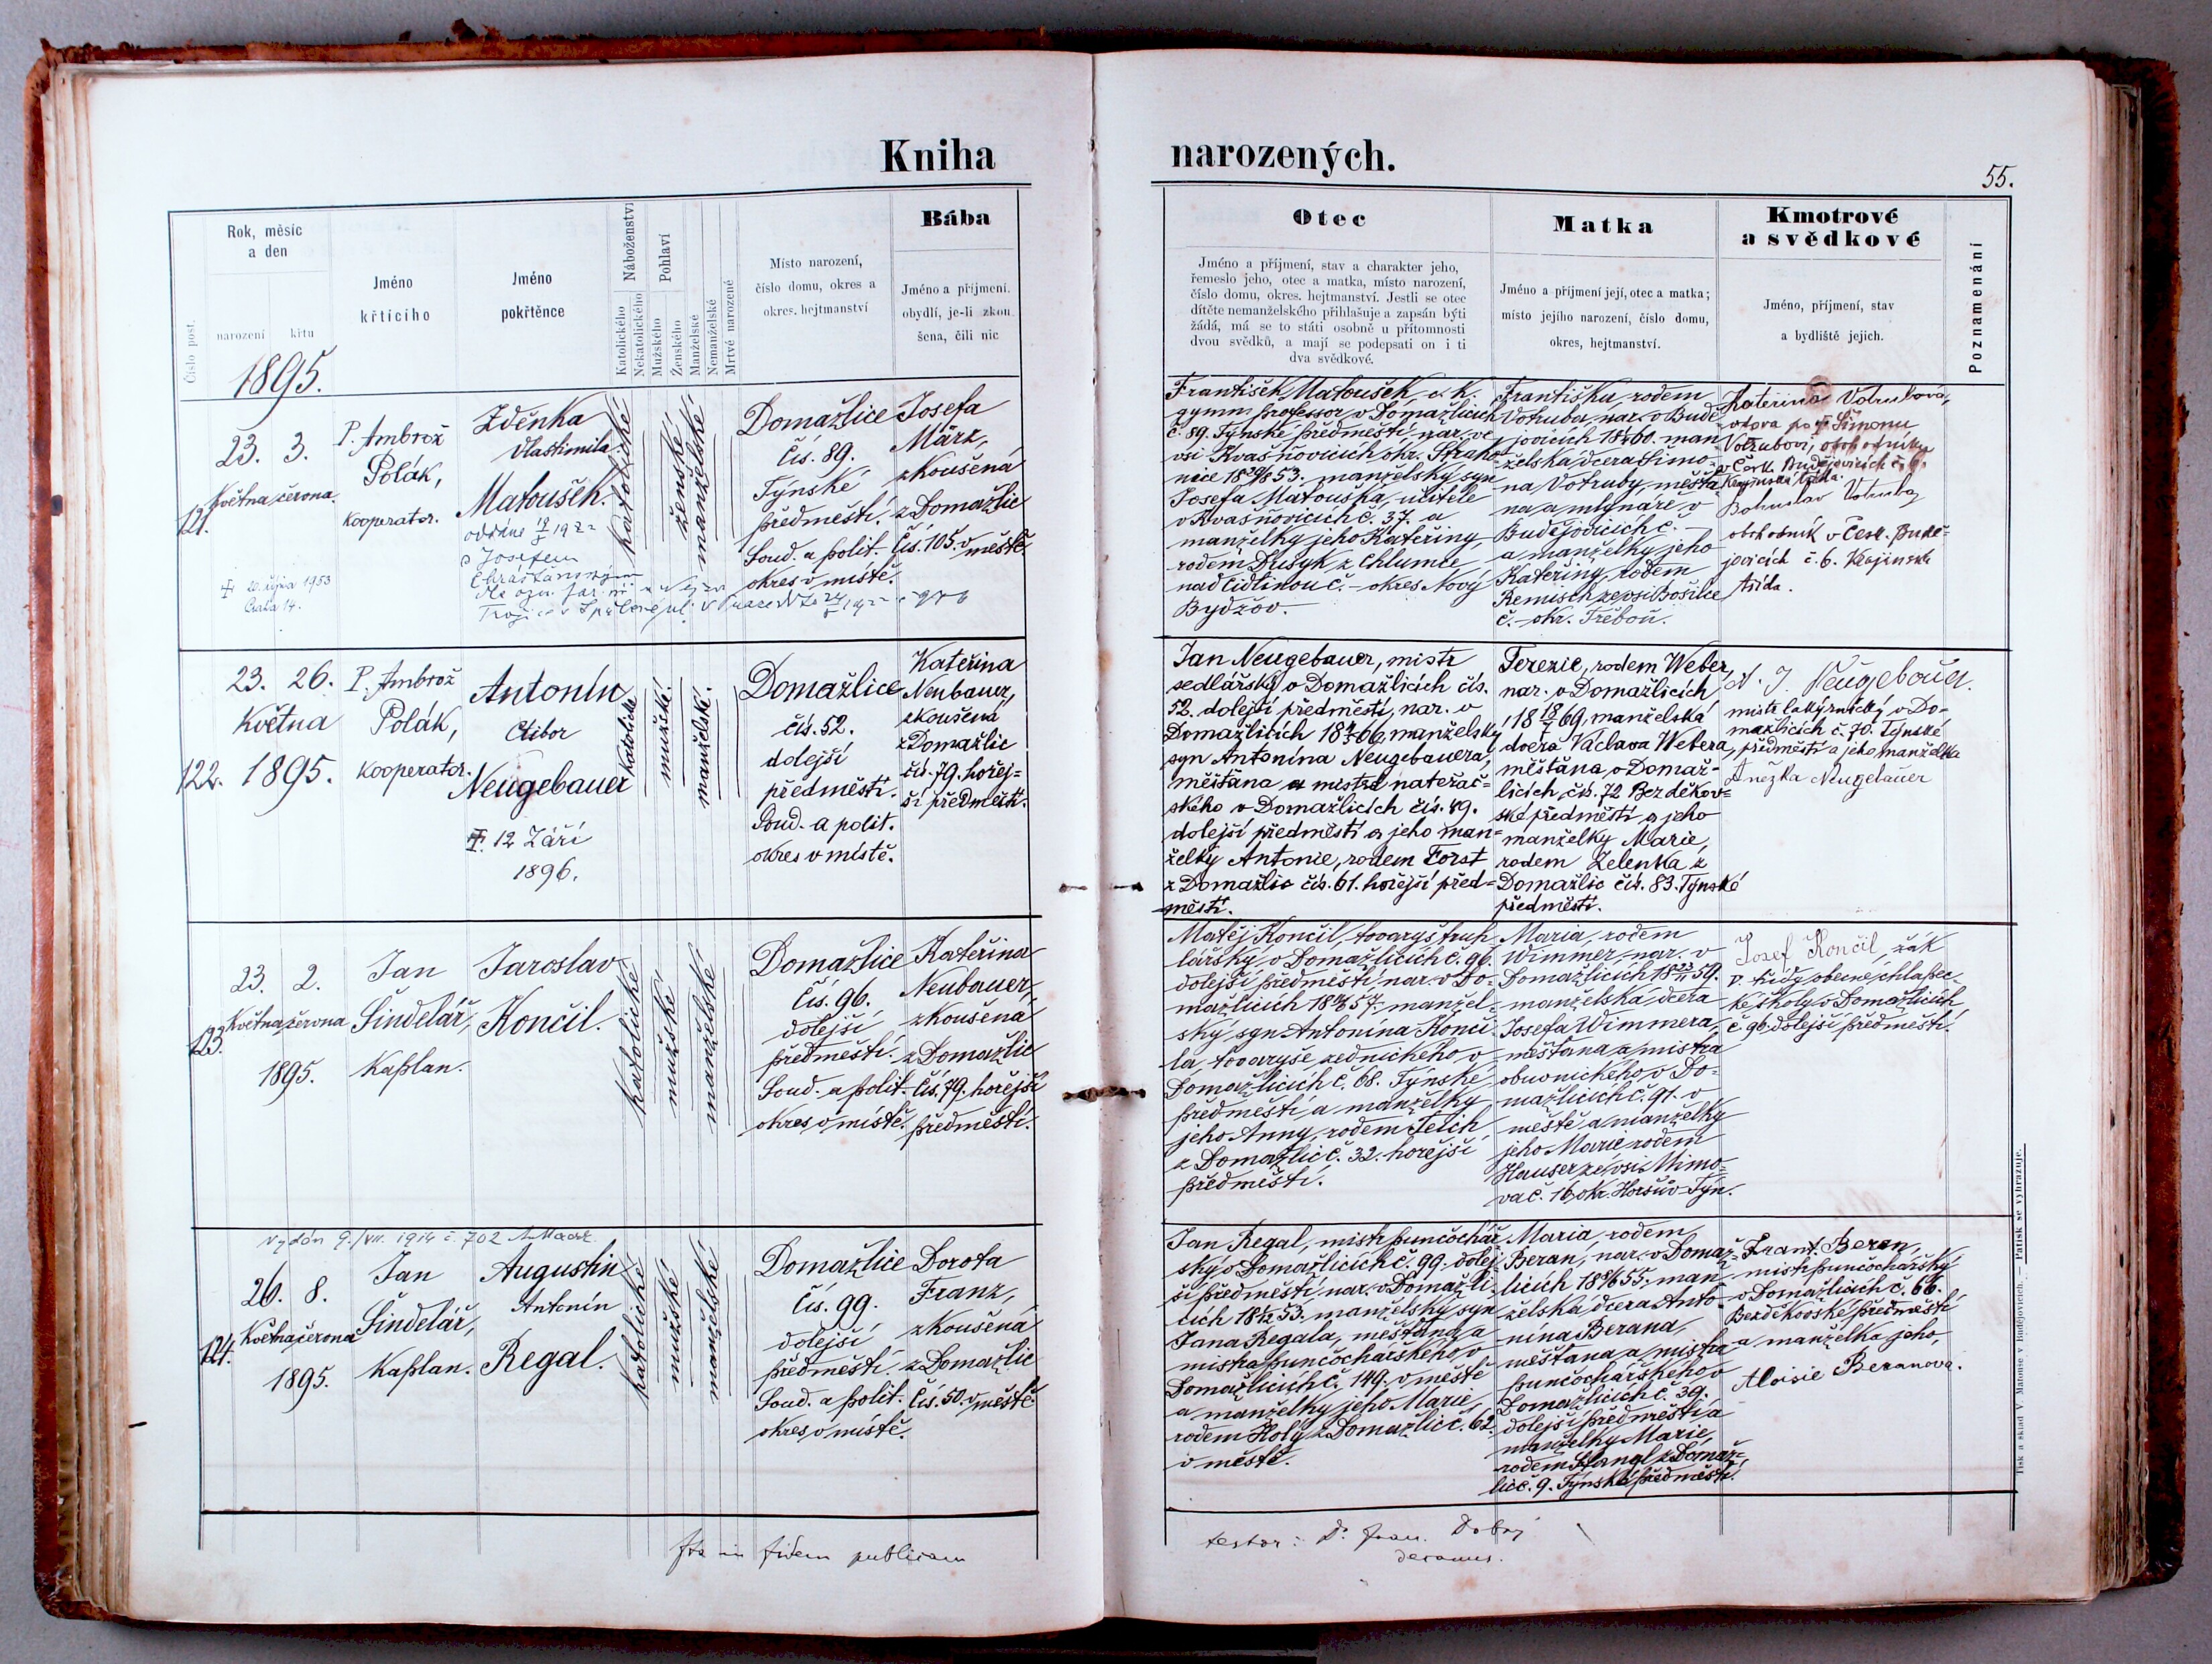 Kniha
narozených.
55.
Číslo post.
Rok, měsíc
a den
narození
křtu
Jméno
křtícího
Jméno
pokřtěnce
Náboženství
Katolického
Nekatolického
Pohlaví
Mužského
Ženského
Manželské
Nemanželské
Mrtvě narozené
Místo narození,
číslo domu, okres a
okres. hejtmanství
Bába
Jméno a příjmení.
obydlí, je-li zkou-
šena, čili nic
Otec
Jméno a příjmení, stav a charakter jeho,
řemeslo jeho, otec a matka, místo narození,
číslo domu, okres. hejtmanství. Jestli se otec
dítěte nemanželského přihlašuje a zapsán býti
žádá, má se to státi osobně u přítomnosti
dvou svědků, a mají se podepsati on i ti
dva svědkové.
Matka
Jméno a příjmení její, otec a matka;
místo jejího narození, číslo domu,
okres, hejtmanství.
Kmotrové
a svědkové
Jméno, příjmení, stav
a bydliště jejich.
Poznamenání
1895.
121.
23. 3.
Května června
✝ 20. října 1953
P. Ambrož
Polák,
kooperator.
Zdeňka
Vlastimila
Matoušek.
oddána 1922
s Josefem
katolické
ženské
manželské
Domažlice
čís. 89.
Týnské
předměstí.
Soud. a polit.
okres v místě.
Josefa
März,
zkoušená
z Domažlic
čís. 105. v městě.
František Matoušek, c. k.
gymn. professor v Domažlicích
č. 89. Týnské předměstí, nar. ve
vsi Kvašňovicích okr. Strako-
nice 1853. manželský syn
Josefa Matouška, učitele
v Kvašňovicích č. 37. a
manželky jeho Kateřiny,
rodem Dusyk z Chlumce
nad Cidlinou č. – okres Nový
Bydžov.
Františka rodem
Votruba, nar. v Budě-
jovicích 1860. man-
želská dcera Šimo-
na Votruby, měšťa-
na a mlynáře v
Budějovicích č. –
a manželky jeho
Kateřiny, rodem
Remisch ze vsi Bošilce
č. – okr. Třeboň.
Kateřina Votrubová,
vdova po ✝ Šimonu
Votrubovi, obchodníku
v Česk. Budějovicích č. 6.
Krajinská třída.
Bohuslav Votruba,
obchodník v Česk. Budě-
jovicích č. 6. Krajinská
třída.
122.
23. 26.
Května
1895.
P. Ambrož
Polák,
kooperator.
Antonín
Ctibor
Neugebauer
✝. 12 Září
1896.
katolické
mužské
manželské.
Domažlice
čís. 52.
dolejší
předměstí.
Soud. a polit.
okres v místě.
Kateřina
Neubauer,
zkoušená
z Domažlic
čís. 79. hořej-
ší předměstí.
Jan Neugebauer, mistr
sedlářský v Domažlicích čís.
52. dolejší předměstí, nar. v
Domažlicích 1866, manželský
syn Antonína Neugebauera,
měšťana a mistra natěrač-
ského v Domažlicích čís. 49.
dolejší předměstí a jeho man-
želky Antonie, rodem Forst
z Domažlic čís. 61. hořejší před-
městí.
Terezie, rodem Weber,
nar. v Domažlicích
18 18/7 69, manželská
dcera Václava Webera,
měšťana v Domaž-
licích čís. 72 Bezděkov-
ské předměstí a jeho
manželky Marie,
rodem Zelenka z
Domažlic čís. 83. Týnské
předměstí.
A. J. Neugebauer.
mistr lakýrnický v Do-
mažlicích č. 70. Týnské
předměstí a jeho manželka
Anežka Neugebauer
123.
23. 2.
Května června
1895.
Jan
Šindelář,
kaplan.
Jaroslav
Končil.
katolické
mužské
manželské
Domažlice
čís. 96.
dolejší
předměstí.
Soud. a polit.
okres v místě.
Kateřina
Neubauer,
zkoušená
z Domažlic
čís. 79. hořejší
předměstí.
Matěj Končil, tovaryš truh-
lářský v Domažlicích č. 96.
dolejší předměstí nar. v Do-
mažlicích 1857. manžel-
ský syn Antonína Konči-
la, tovaryše zednického v
Domažlicích č. 68. Týnské
předměstí a manželky
jeho Anny, rodem Telich
z Domažlic č. 32. hořejší
předměstí.
Maria, rodem
Wimmer, nar. v
Domažlicích 1859.
manželská dcera
Josefa Wimmera,
měšťana a mistra
obuvnického v Do-
mažlicích č. 91. v
městě a manželky
jeho Marie rodem
Hauser ze vsi Mimo-
va č. 16, okr. Horšův-Týn.
Josef Končil, žák
V. třídy obecné chlapec-
ké školy v Domažlicích
č. 96 dolejší předměstí.
Vydán 9./VII. 1914 č. 702
124.
26. 8.
Května června
1895.
Jan
Šindelář,
kaplan.
Augustin
Antonín
Regal.
katolické
mužské
manželské
Domažlice
čís. 99.
dolejší
předměstí.
Soud. a polit.
okres v místě.
Dorota
Franz,
zkoušená
z Domažlic
čís. 50. v městě.
Jan Regal, mistr punčochář-
ský v Domažlicích č. 99. dolej-
ší předměstí nar. v Domažli-
cích 1853. manželský syn
Jana Regala, měšťana a
mistra punčochářského v
Domažlicích č. 149. v městě
a manželky jeho Marie,
rodem Holý z Domažlic č. 62.
v městě.
Maria rodem
Beran, nar. v Domaž-
licích 1855. man-
želská dcera Anto-
nína Berana,
měšťana a mistra
punčochářského v
Domažlicích č. 39.
dolejší předměstí a
manželky Marie,
rodem Stangl z Domaž-
lic č. 9. Týnské předměstí.
Frant. Beran,
mistr punčochářský
v Domažlicích č. 66.
Bezděkovské předměstí
a manželka jeho,
Aloisie Beranova.
Ita in fidem publicam
testor: Dr Fran. Dobrý
decanus.
Tisk a sklad V. Matouše v Budějovicích. — Patisk se vyhrazuje.